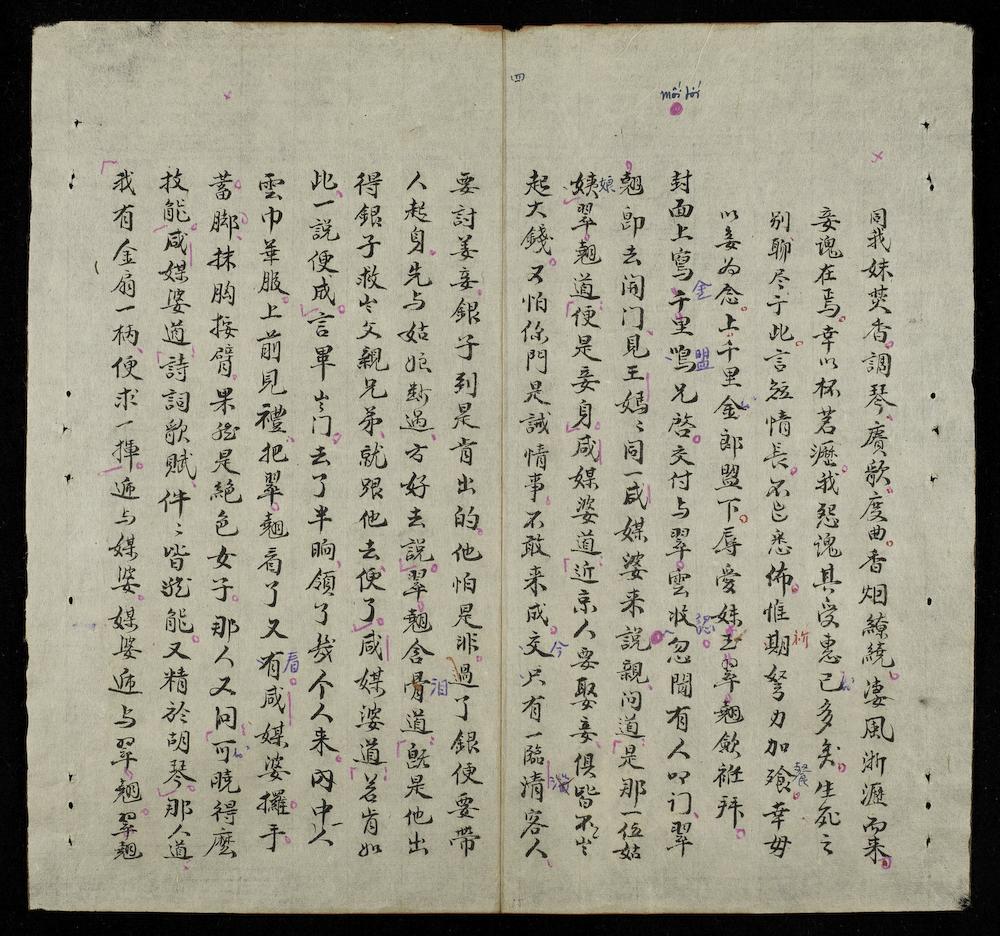 四
mối tới
同我妹焚香調琴賡歌度曲香烟繚繞凄風淅瀝而来
妾魂在焉幸以杯茗瀝我怨魂其受惠已多矣生死之
别聊尽于此言短情長不 悉佈惟期努力加飱幸毋
祈
餐
以妾为念上千里金郎盟下辱愛妹王翠翹歛袵拜
封面上寫千里 兄啓交付与翠雲收忽聞有人叩门翠
金
盟
認
翹即去開门見王媽〻同一咸媒婆来說親问道是那一位姑
娘
姨翠翹道便是妾身咸媒婆道近京人要娶妾俱皆不出
起大錢又怕你門是誠情事不敢来成交只有一臨清客人
今
要討姜妾銀子到是肯出的他怕是非過了銀便要帶
人起身先与姑娘斷過方好去說翠翹含骨道既是他出
泪
得銀子救出父親兄弟就跟他去便了咸媒婆道若肯如
此一說便成言畢出门去了半晌領了幾个人来内中一人
雲巾華服上前見禮把翠翹看了又有咸媒婆攞手
看
蓄脚抹胸按臂果然是絕色女子那人又问可曉得麽
技能咸媒婆道詩詞歌賦件〻皆能又精於胡琴那人道
我有金扇一柄便求一揮遞与媒婆媒婆遞与翠翹翠翹